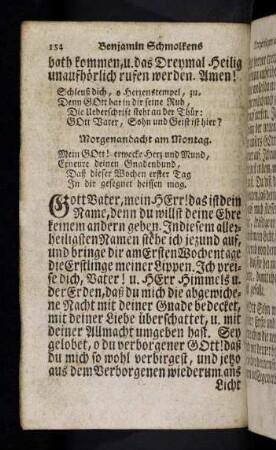 154 Benjamin Schmolkens
bath kommen, u. das Dreymal Heilig
unaufhörlich rufen werden. Amen!
Schleuß dich, o Herzenstempel, zu,
Denn GOtt hat in dir seine Ruh,
Die Ueberschrift steht an der Thür:
GOtt Vater, Sohn und Geist ist hier?
Morgenandacht am Montag.
Mein GOtt! erwecke Herz und Mund,
Erneure deinen Gnadenbund,
Daß dieser Wochen erster Tag
In dir gesegnet heissen mag.
GOtt Vater, mein HErr! das ist dein
Name, denn du willst deine Ehre
keinem andern geben. In diesem aller-
heiligsten Namen stehe ich jezund auf,
und bringe dir am Ersten Wochentage
die Erstlinge meiner Lippen. Ich prei-
se dich, Vater! u. HErr Himmels u.
der Erden, daß du mich die abgewiche-
ne Nacht mit deiner Gnade bedecket,
mit deiner Liebe überschattet, u. mit
deiner Allmacht umgeben hast. Sey
gelobet, o du verborgener GOtt! daß
du mich so wohl verbirgest, und jetzo
aus dem Verborgenen wiederum ans
Licht